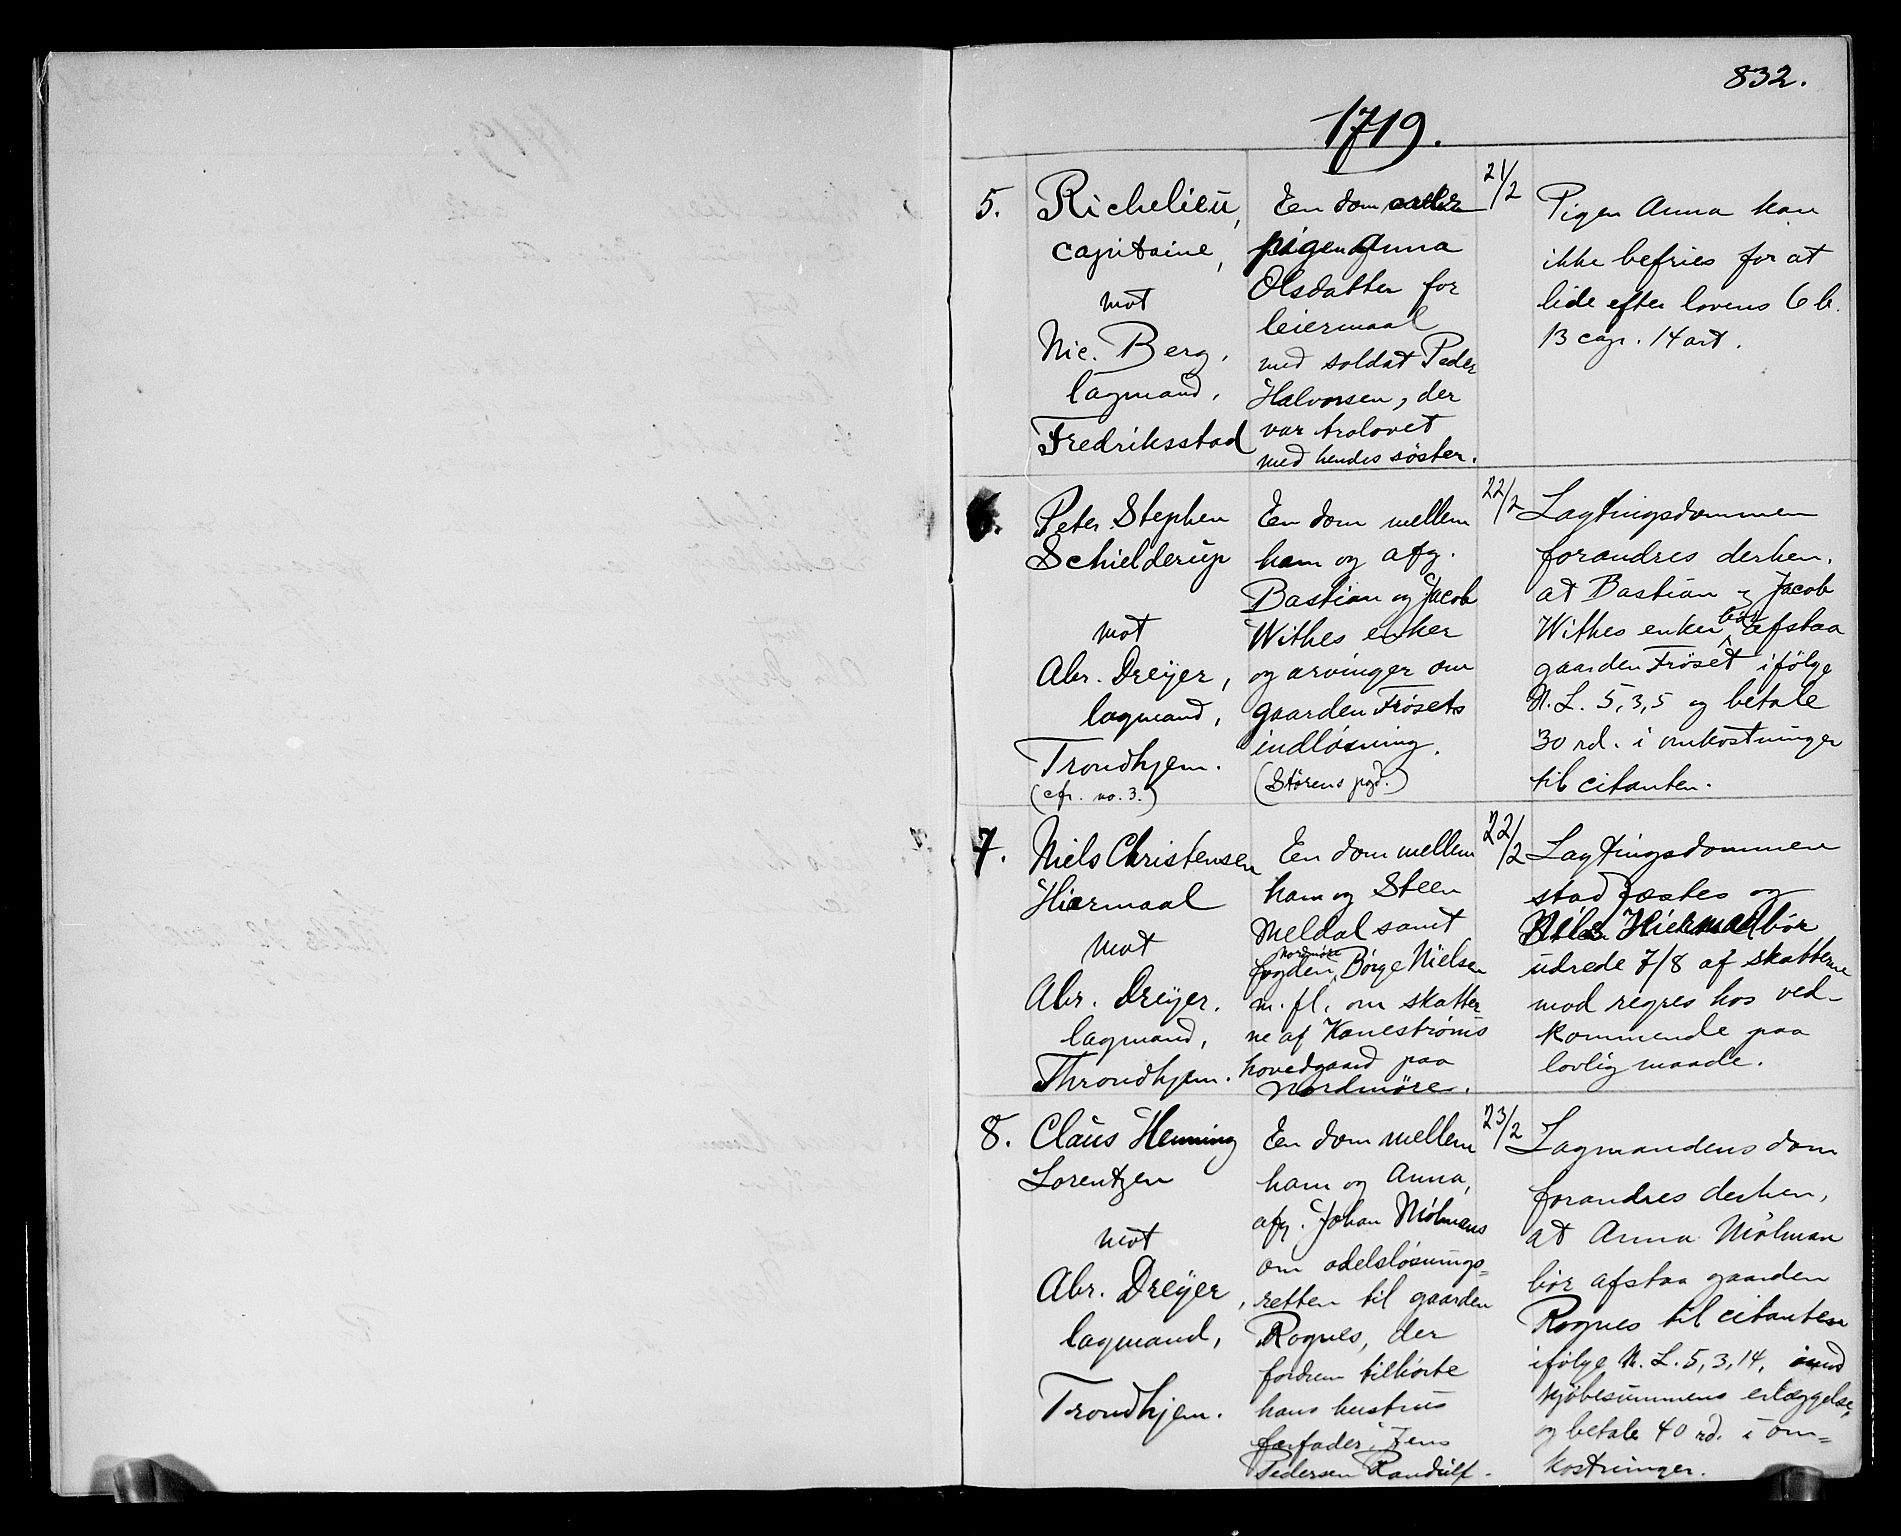 832.
1719.
5.
Richelieu,
capitaine,
mot
Nic. Berg,
lagmand,
Fredriksstad
En dom
pigen Anna
Olsdatter for
leiermaal
med soldat Peder
Halvorsen, der
var trolovet
med hendes søster.
21/2
Pigen Anna kan
ikke befries for at
lide efter lovens 6 b.
13 cap. 14 art.
6.
Peter Stephen
Schielderup
mot
Abr. Dreyer,
lagmand,
Trondhjem.
(cfr. no. 3.)
En dom mellem
ham og afg.
Bastian og Jacob
Withes enker
og arvinger om
gaarden Frøsets
indløsning.
(Størens pgd.)
22/2
Lagtingsdommen
forandres derhen,
at Bastian og Jacob
Withes enker bør afstaa
gaarden Frøset ifølge
N. L. 5, 3, 5 og betale
30 rd. i omkostninger
til citanten.
7.
Niels Christensen
Hiermaal
mot
Abr. Dreyer.
lagmand,
Throndhjem.
En dom mellem
ham og Steen
Meldal samt
Nordmøre
fogden, Børge Nielsen
m. fl. om skatter
ne af Kanestrøms
hovedgaard paa
Nordmøre.
22/2
Lagtingsdommen
stadfæstes og
Niels Hiermaal bør
udrede 7/8 af skatterne
mod regres hos ved-
kommende paa
lovlig maade.
8.
Claus Henning
Lorentzen
mot
Abr. Dreyer,
lagmand,
Trondhjem.
En dom mellem
ham og Anna,
afg. Johan Mølmans
om odelsløsnings=
retten til gaarden
Rognes, der
fordum tilhørte
hans hustrus
farfader Jens
Pedersen Randulf.
23/2
Lagmandens dom
forandres derhen,
at Anna Mølman
bør afstaa gaarden
Rognes til citanten
ifølge N. L. 5, 3, 14, imod
kjøbesummens erlæggelse,
og betale 40 rd. i om=
kostninger.